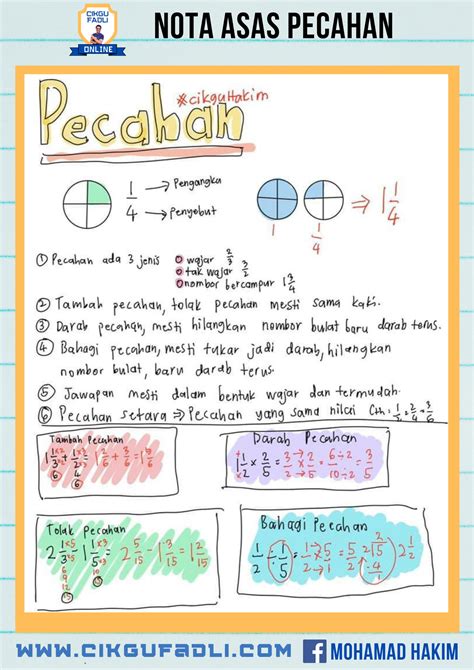 CIKGU
FADLI
ONLINE
NOTA ASAS PECAHAN
Pecahan
#cikguHakim
1/4 → Pengangka
→ Penyebut
1
1/4
⇒ 1 1/4
① Pecahan ada 3 jenis
wajar 2/3
tak wajar 3/2
nombor bercampur 1 3/4
② Tambah pecahan, tolak pecahan mesti sama kaki.
③ Darab pecahan, mesti hilangkan nombor bulat baru darab terus.
④ Bahagi pecahan, mesti tukar jadi darab, hilangkan
nombor bulat, baru darab terus.
⑤ Jawapan mesti dalam bentuk wajar dan termudah.
⑥ Pecahan setara ⇒ Pecahan yang sama nilai Cth: 1/2 = 2/4 = 3/6
Tambah Pecahan
Darab Pecahan
1 1/2 × 2/5 = 3/2 × 2/5 = 6÷2/10÷2 = 3/5
Tolak Pecahan
2 1/3 - 1 1/5 = 2 5/15 - 1 3/15 = 1 2/15
6
9
12
15
10
15
Bahagi Pecahan
WWW.CIKGUFADLI.COM
f MOHAMAD HAKIM